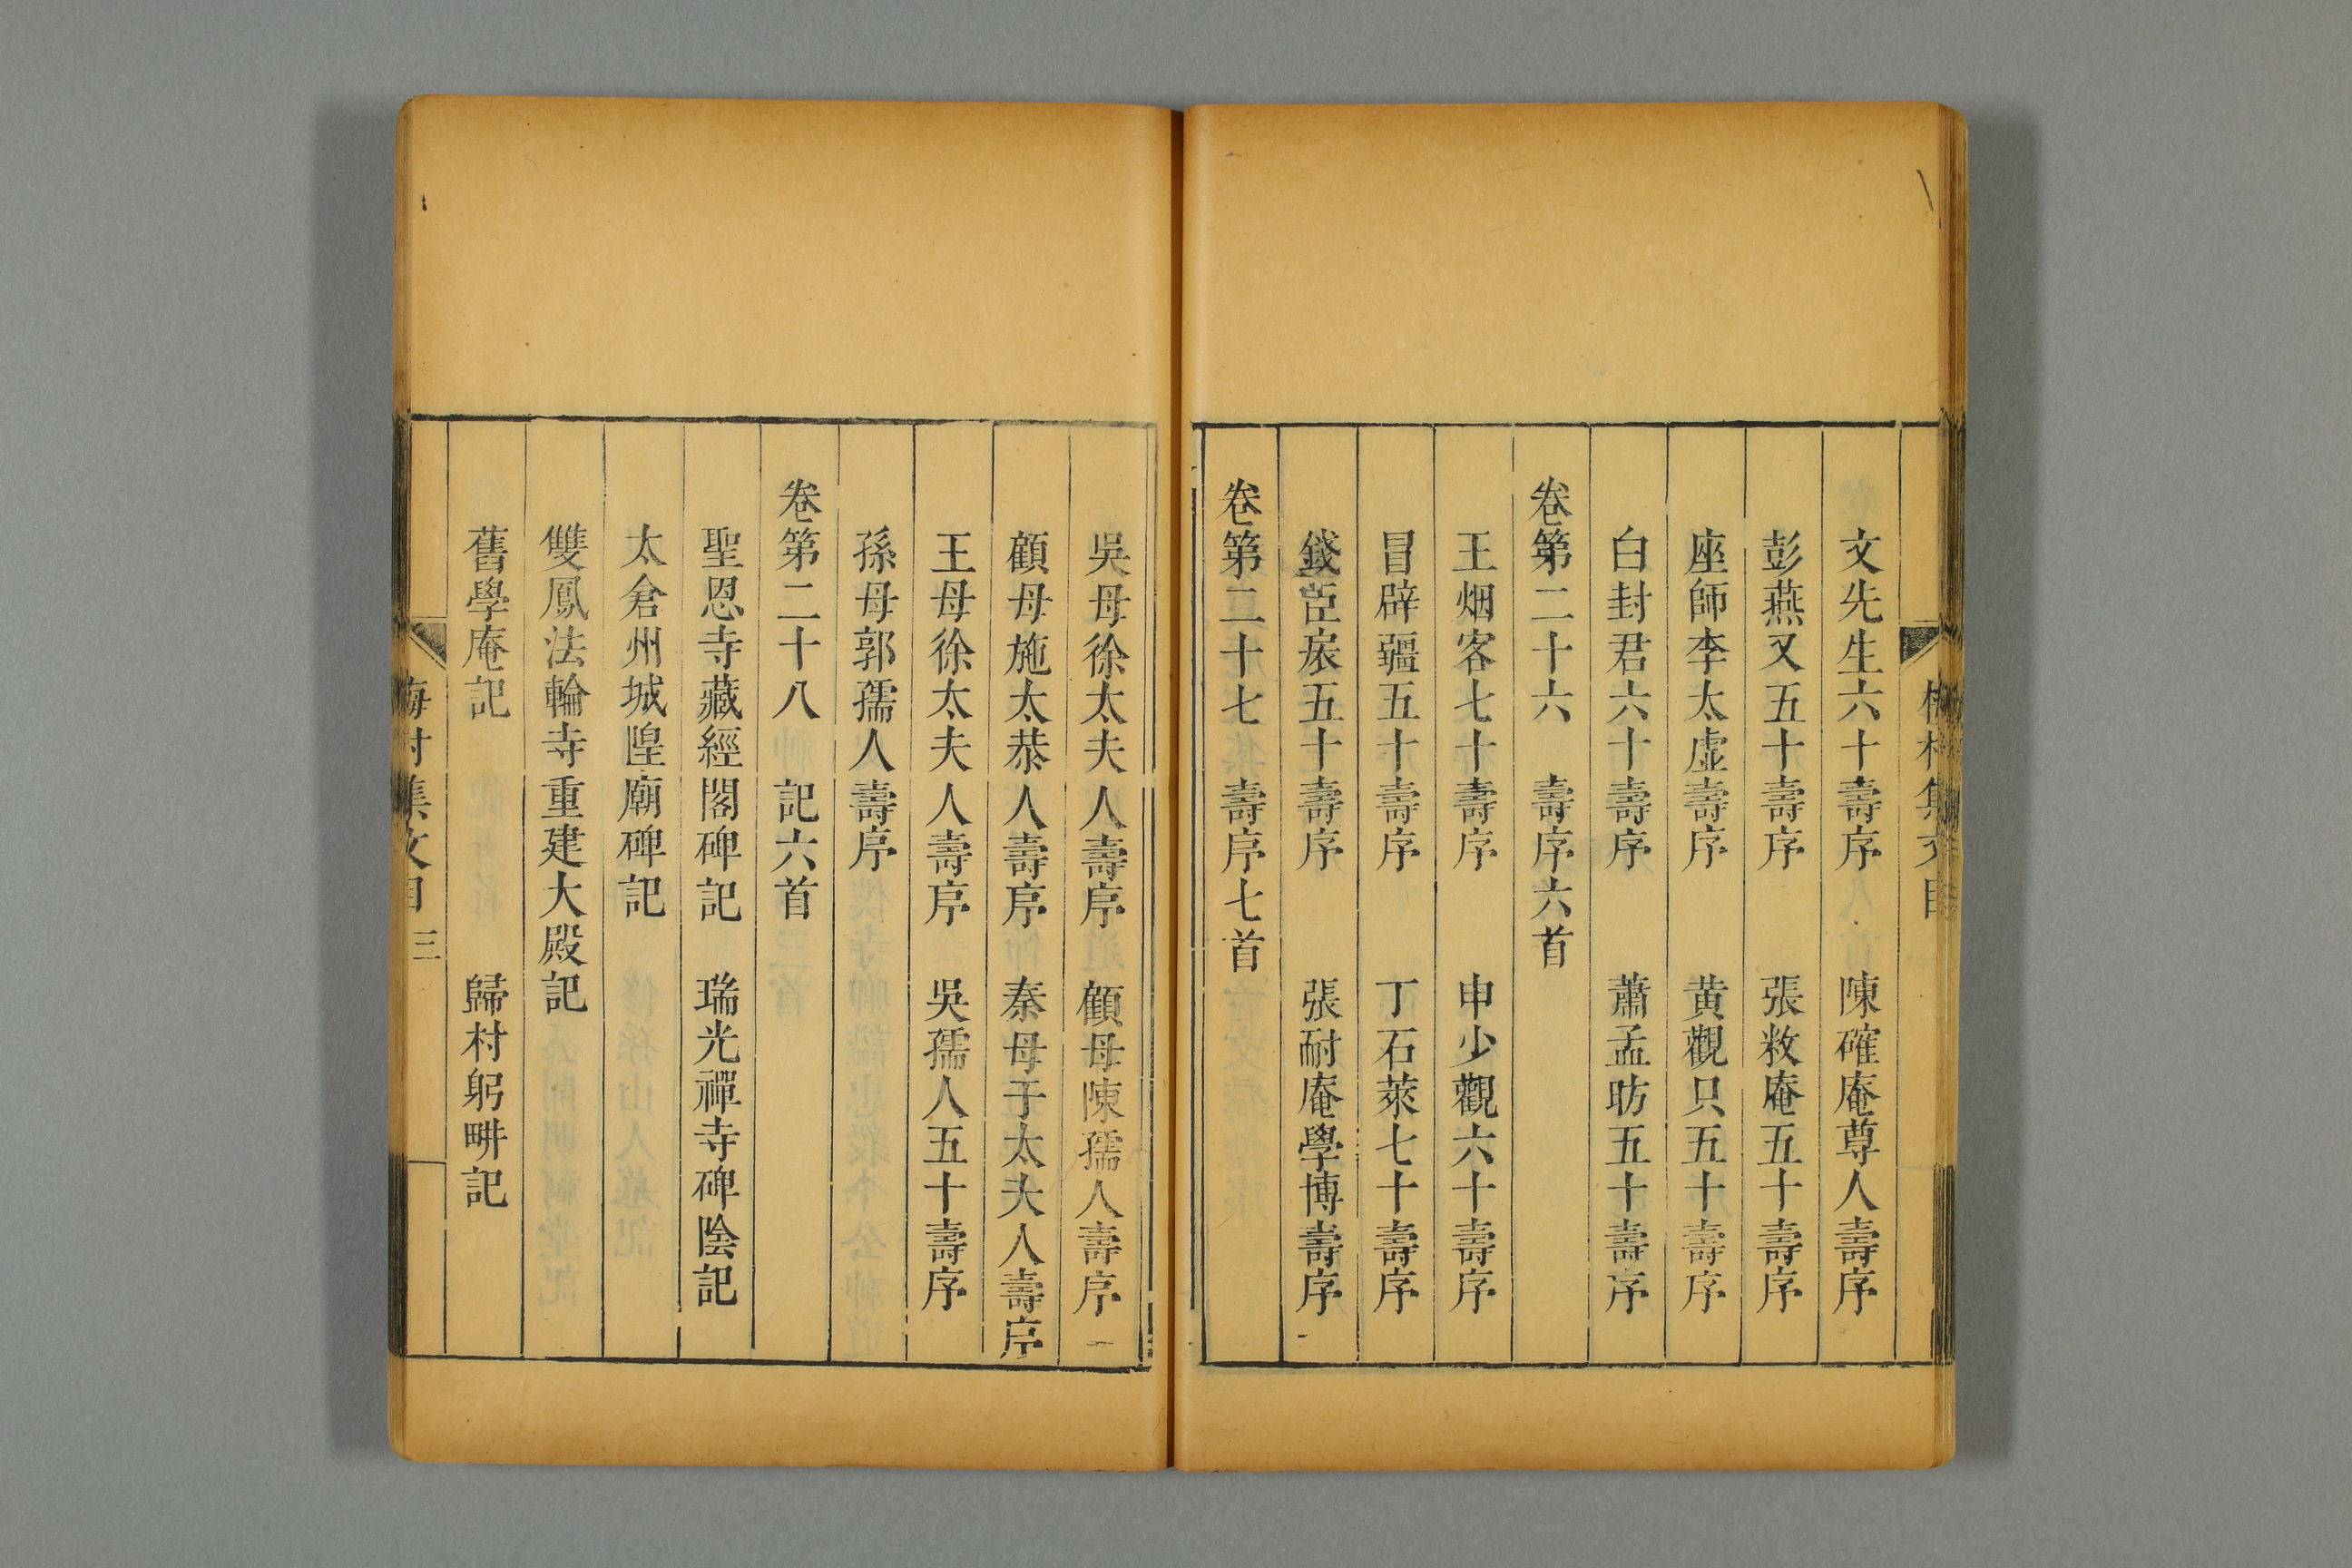 文先生六十壽序　陳確庵尊人壽序
彭燕又五十壽序　張敉庵五十壽序
座師李太虚壽序　黄觀只五十壽序
白封君六十壽序　蕭孟昉五十壽序
卷第二十六　壽序六首
王烟客七十壽序　申少觀六十壽序
冒辟疆五十壽序　丁石萊七十壽序
錢臣扆五十壽序　張耐庵學博壽序
卷第二十七　壽序七首
吳母徐太夫人壽序　顧母陳孺人壽序
顧母施太恭人壽序　秦母于太夫人壽序
王母徐太夫人壽序　吳孺人五十壽序
孫母郭孺人壽序
卷第二十八　記六首
聖恩寺藏經閣碑記　瑞光禪寺碑陰記
太倉州城隍廟碑記
雙鳳法輪寺重建大殿記
舊學庵記　歸村躬畊記
梅村集文目　三